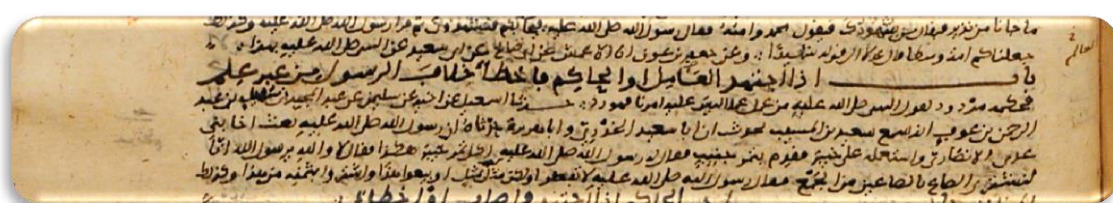 ما جانا من نذير فيقال من شهودك فيقول محمد وامته فقال رسول الله صلى الله عليه فيجا بكم فتشهدون ثم قرا رسول الله صلى الله عليه وكذلك
العالم
جعلناكم امة وسطا قال عدلا الى قوله شهيدا وعن جعفر بن عون انا الاعمش عن ابي صالح عن ابي سعيد عن النبي صلى الله عليه بهذا
باب اذا اجتهد العامل او الحاكم فاخطأ خلاف الرسول من غير علم
فحكمه مردود لقول النبي صلى الله عليه من عمل عملا ليس عليه امرنا فهو رد حدثنا اسمعيل عن اخيه عن سليمن عن عبد المجيد بن سهيل بن عبد
الرحمن بن عوف انه سمع سعيد بن المسيب يحدث ان ابا سعيد الخدري وابا هريرة حدثاه ان رسول الله صلى الله عليه بعث اخا بني
عدي الانصاري واستعمله على خيبر فقدم بتمر جنيب فقال له رسول الله صلى الله عليه اكل تمر خيبر هكذا فقال لا والله يرسول الله انا
لنشتري الصاع بالصاعين من الجمع فقال رسول الله صلى الله عليه لا تفعلوا ولكن مثل بمثل او بيعوا هذا واشتروا بثمنه من هذا وكذلك
الحاكم اذا اجتهد فاصاب او اخطأ